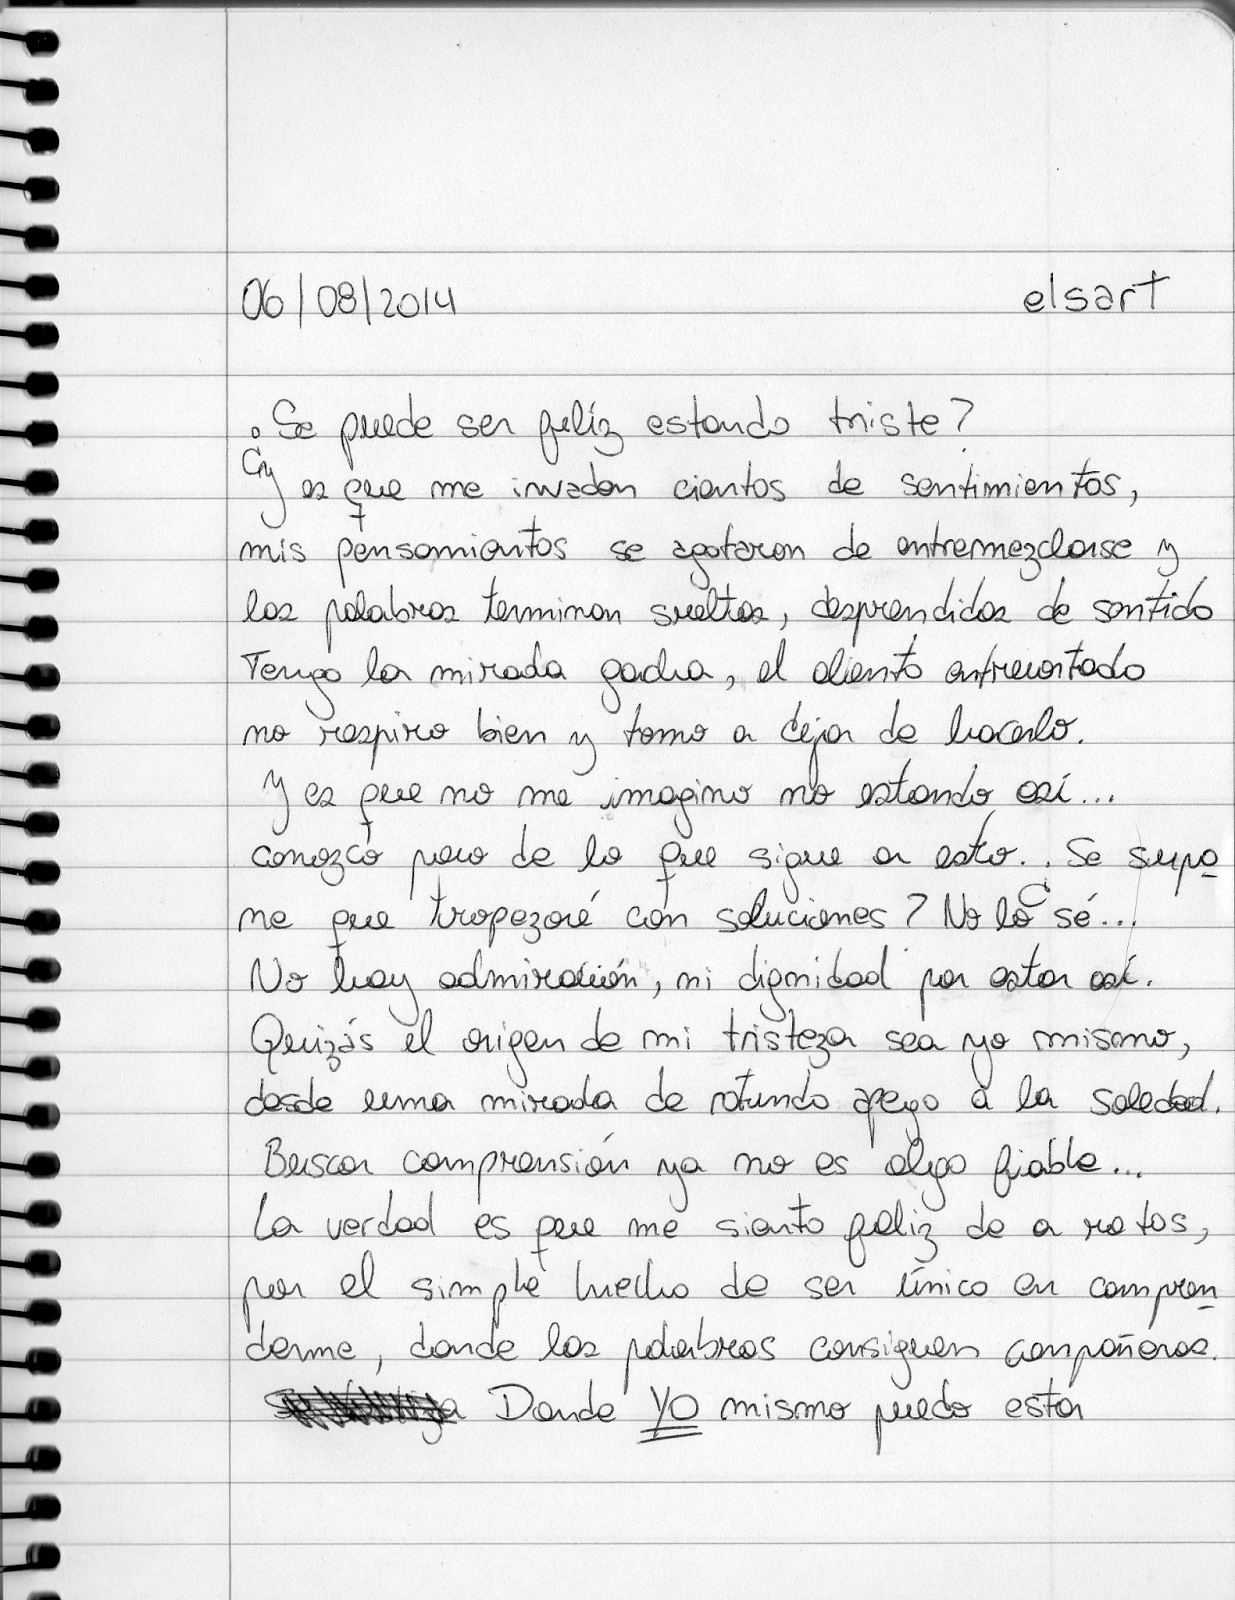 06/08/2014 elsart
¿Se puede ser felíz estando triste?
Y es que me invaden cientos de sentimientos,
mis pensamientos se agotaron de entremezclarse y
las palabras terminan sueltas, desprendidas de sentido
Tengo la mirada gacha, el aliento entrecortado
no respiro bien y temo a dejar de hacerlo.
Y es que no me imagino no estando así...
conozco poco de lo que sigue a esto... ¿Se supo
me que tropezaré con soluciones? No lo sé...
No hay admiración, ni dignidad por estar así.
Quizás el origen de mi tristeza sea yo mismo,
desde una mirada de rotundo apego a la soledad.
Buscar comprensión ya no es algo fiable...
La verdad es que me siento feliz de a ratos,
por el simple hecho de ser único en compren
derme, donde las palabras consiguen compañeras.
Donde YO mismo puedo estar